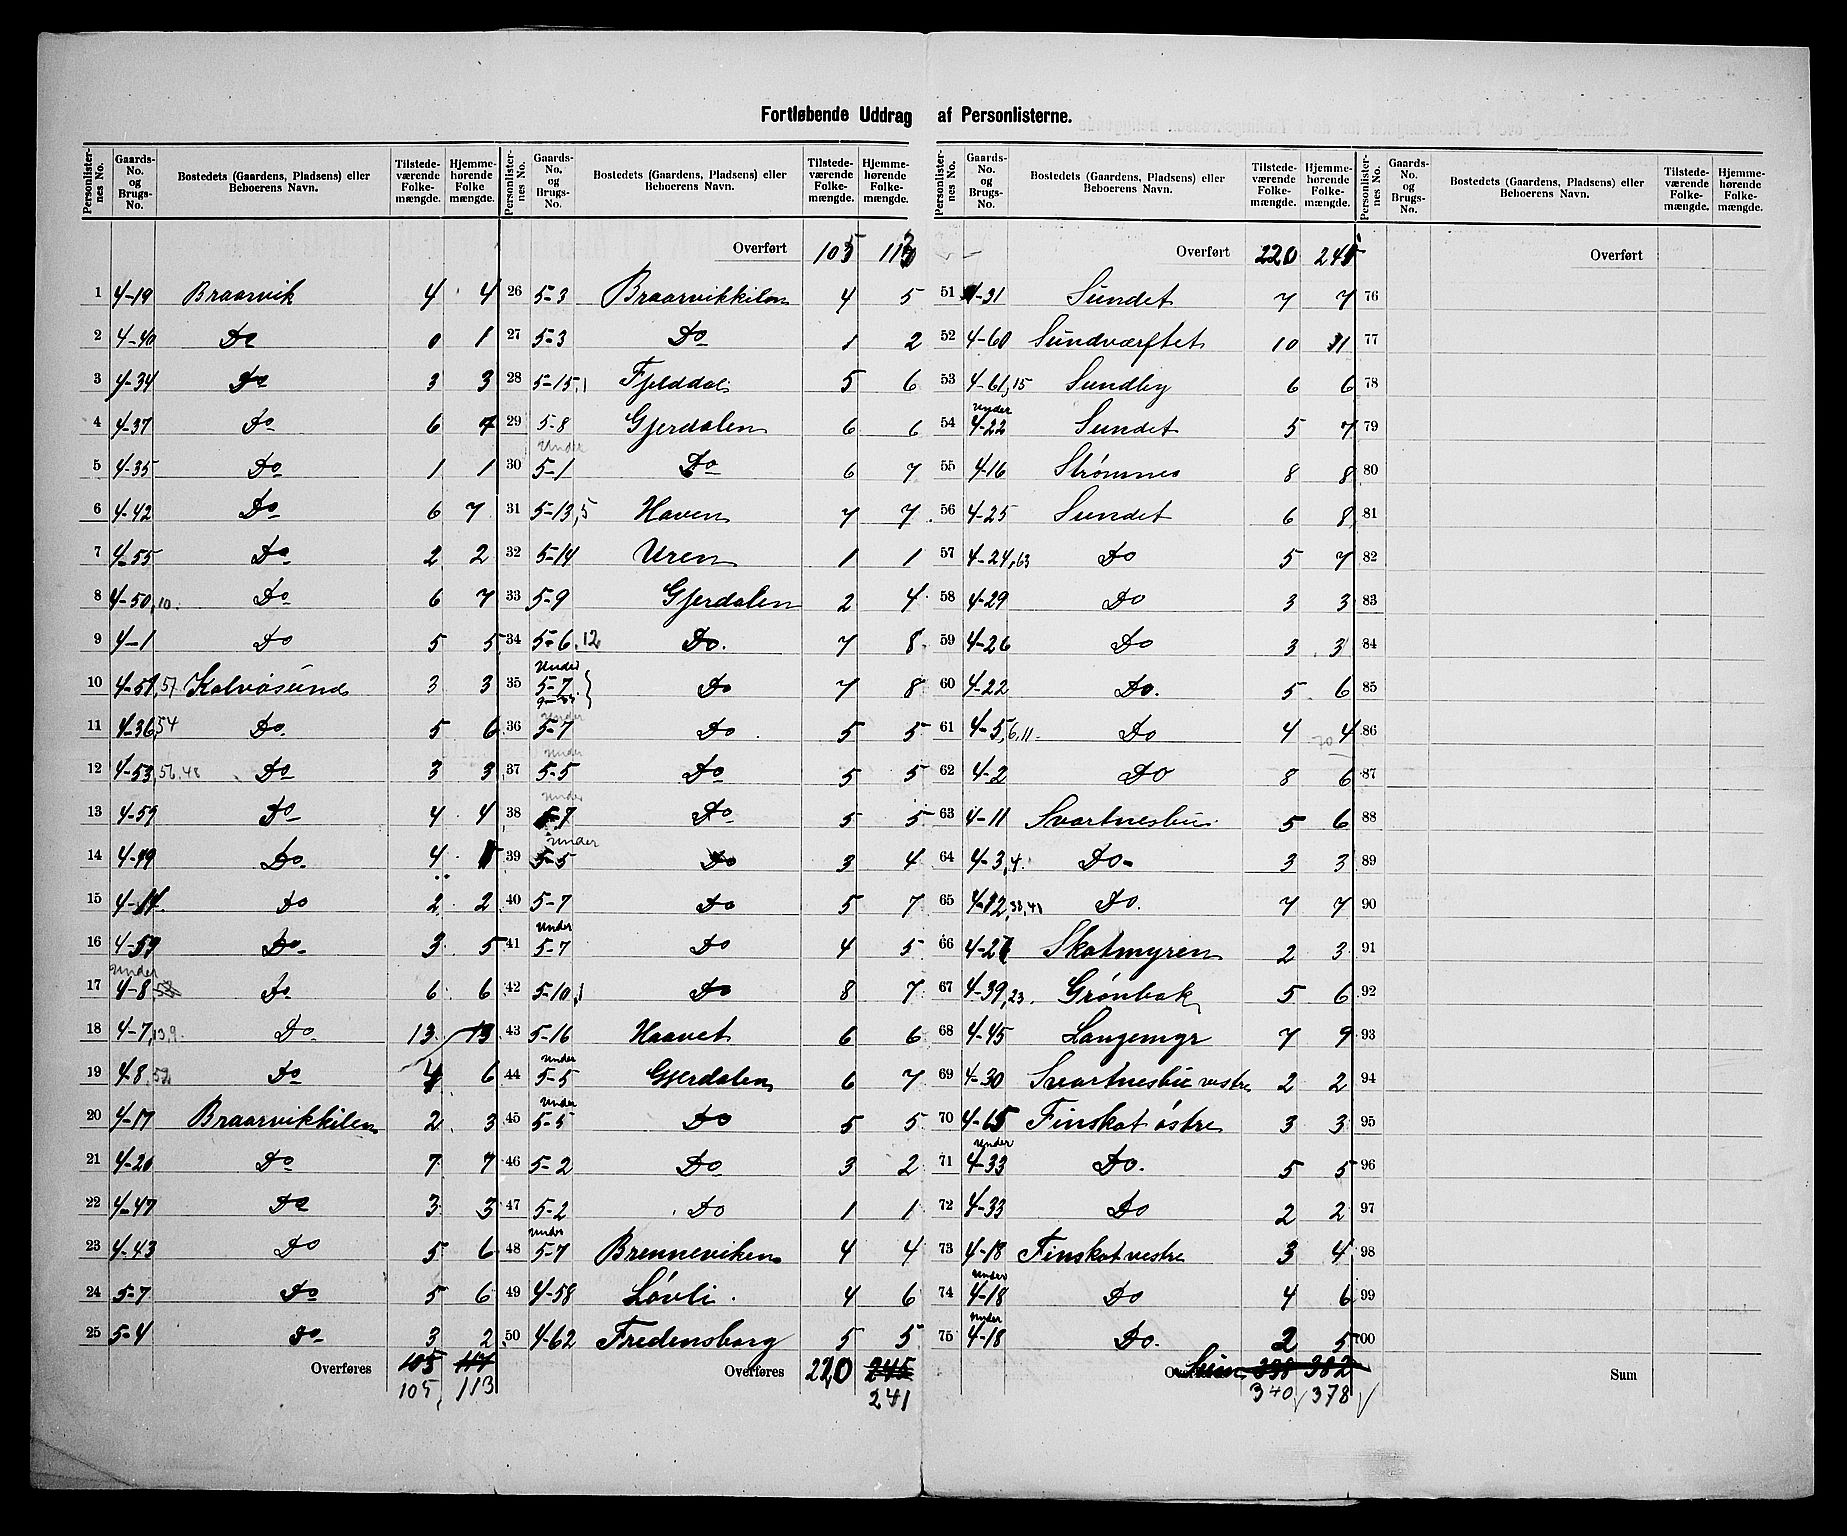 Fortløbende Uddrag af Personlisterne.
Personlister-nes No. | Gaards-No. og Brugs-No. | Bostedets (Gaardens, Pladsens) eller Beboerens Navn. | Tilstede-værende Folke-mængde. | Hjemme-hørende Folke mængde.
1 4-19 Braarvik 4 4
2 4-40 Do 0 1
3 4-34 Do 3 3
4 4-37 Do 6 7
5 4-35 Do 1 1
6 4-42 Do 6 7
7 4-55 Do 2 2
8 4-50,10. Do 6 7
9 4-1 Do 5 5
10 4-51,57 Kalvøsund 3 3
11 4-36,54 Do. 5 6
12 4-53,56,48 Do 3 3
13 4-59 Do 4 4
14 4-49 Do. 4
15 4-14. Do 2 2
16 4-59 Do. 3 5
17 Under 4-8 Do 6 6
18 4-7,13,9. Do 13 13
19 4-8,52 Do 4 6
20 4-17 Braarvikkilen 2 3
21 4-20 Do 7 7
22 4-47 Do 3 3
23 4-43 Do 5 6
24 5-7 Do 5 6
25 5-4 Do 3 2
Overføres 105 117
105, 113
Personlister-nes No. | Gaards-No. og Brugs-No. | Bostedets (Gaardens, Pladsens) eller Beboerens Navn. | Tilstede-værende Folke-mængde. | Hjemme-hørende Folke-mængde.
Overført 105 113
26 5-3 Braarvikkilen 4 5
27 5-3 Do 1 2
28 5-15,1 Fjelddal 5 6
29 5-8 Gjerdalen 6 6
30 Under 5-1 Do 6 7
31 5-13,5 Haven 7 7
32 5-14 Uren 1 1
33 5-9 Gjerdalen 2 4
34 5-6,12 Do. 7 8
35 Under 5-7 Do 7 8
36 Under 5-7 Do 5 5
37 Under 5-5 Do 5 5
38 Under 5-7 Do 5 5
39 Under 5-5 Do 3 4
40 5-7 Do 5 7
41 Under 5-7 Do 4 5
42 5-10,1 Do 8 7
43 5-16 Haavet 6 6
44 Under 5-5 Gjerdalen 6 7
45 Under 5-5 Do 5 5
46 5-2 Do 3 2
47 5-2 Do 1 1
48 Under 5-7 Brenneviken 4 4
49 4-58 Løvli. 4 6
50 4-62 Fredensborg 5 5
Overføres 220 245
241
Personlister-nes No. | Gaards-No. og Brugs-No. | Bostedets (Gaardens, Pladsens) eller Beboerens Navn. | Tilstede-værende Folke-mængde. | Hjemme-hørende Folke-mængde.
Overført 220 241
51 4-31 Sundet 7 7
52 4-60 Sundværftet 10 11
53 4-61,15 Sundby 6 6
54 Under 4-22 Sundet 5 7
55 4-16 Strømnes 8 8
56 4-25 Sundet 6 8
57 4-24,63 Do 5 7
58 4-29 Do 3 3
59 4-26 Do 3 3
60 4-22 Do. 5 6
61 4-5,6,11. Do 4 4
70
62 4-2 Do 8 6
63 4-11 Svartnesbu 5 6
64 4-3,4. Do- 3 3
65 4-12,38,41 Do. 7 7
66 4-21 Skatmyren 2 3
67 4-39,23. Grønbak 5 6
68 4-45 Langemyr 7 9
69 4-30 Svartnesbu vestre 2 2
70 4-65 Finskot østre 3 3
71 Under 4-33 Do. 5 5
72 4-33 Do 2 2
73 4-18 Finskot vestre 3 4
74 Under 4-18 Do 4 6
75 Under 4-18 Do. 2 5
Sum 338 382
340 378
Personlister-nes No. | Gaards-No. og Brugs-No. | Bostedets (Gaardens, Pladsens) eller Beboerens Navn. | Tilstede-værende Folke-mængde. | Hjemme-hørende Folke-mængde.
Overført
76
77
78
79
80
81
82
83
84
85
86
87
88
89
90
91
92
93
94
95
96
97
98
99
100
Sum